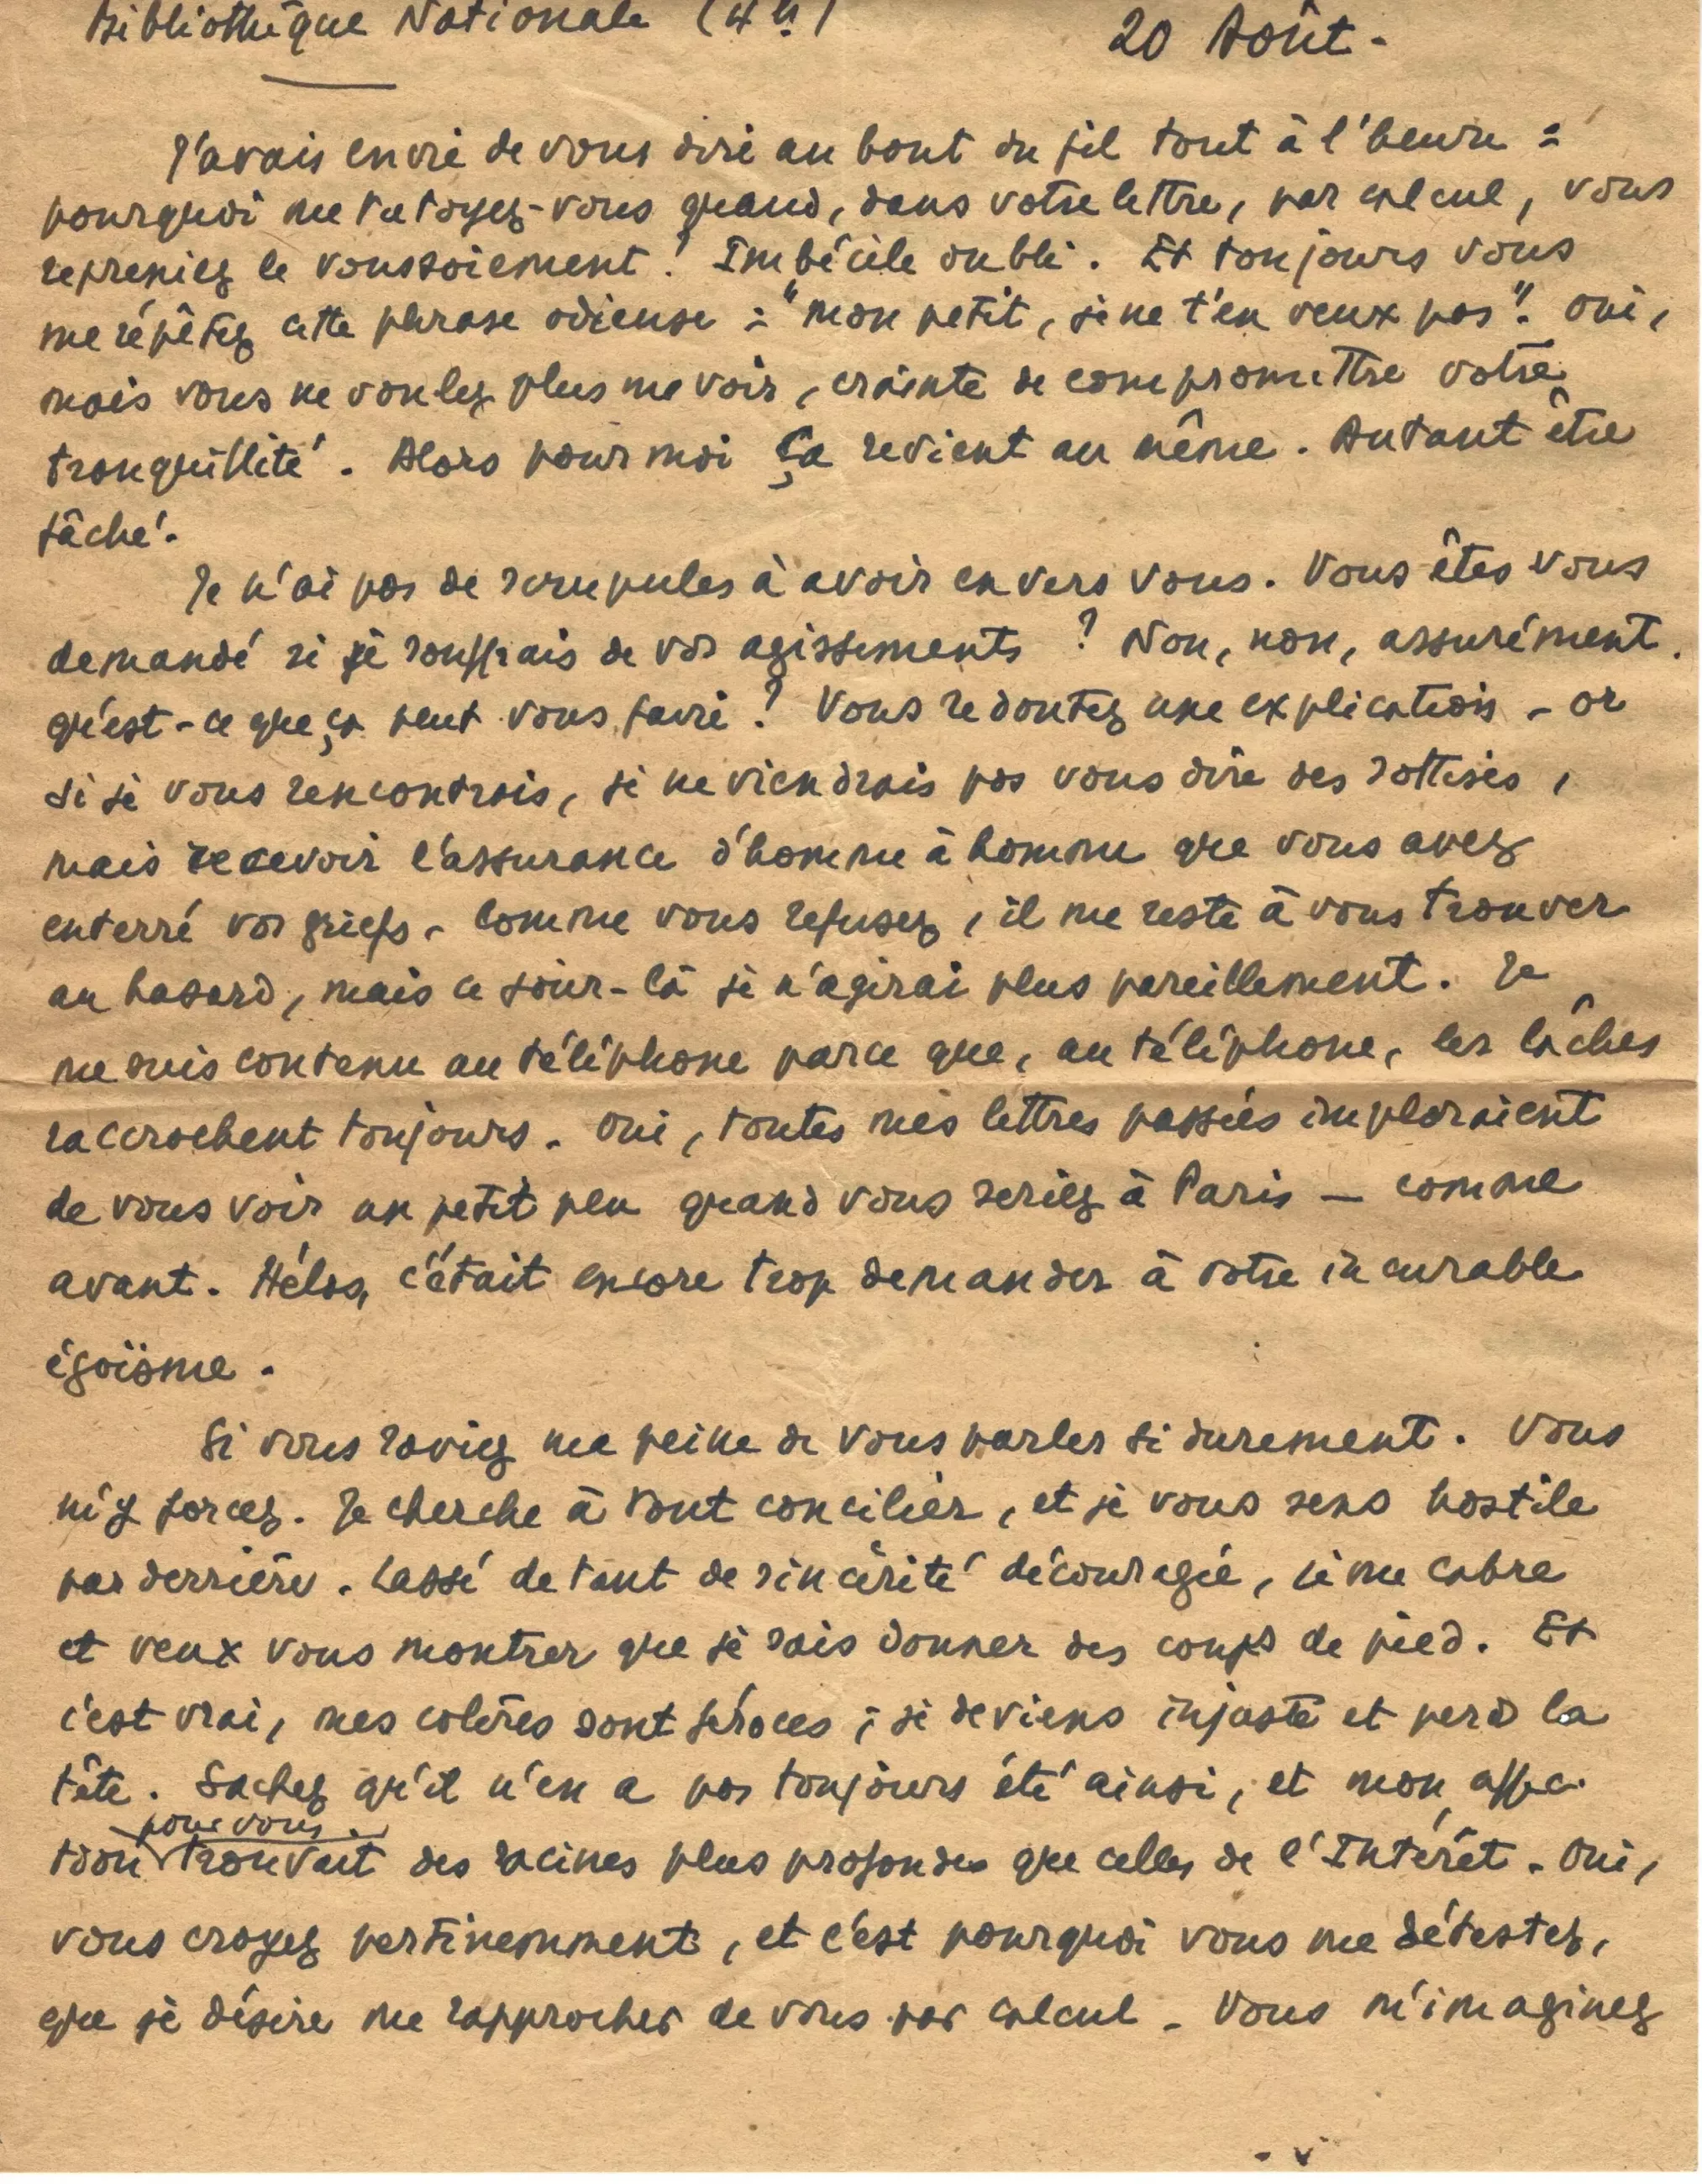 Bibliothèque Nationale (4h)
20 Août -
J'avais envie de vous dire au bout du fil tout à l'heure :
pourquoi me tutoyez-vous quand, dans votre lettre, par calcul, vous
repreniez le voussoiement ! Imbécile oubli. Et toujours vous
me répêtez cette phrase odieuse : "mon petit, je ne t'en veux pas". Oui,
mais vous ne voulez plus me voir, crainte de compromettre votre
tranquillité. Alors pour moi ça revient au même. Autant être
fâché.
Je n'ai pas de scrupules à avoir envers vous. Vous êtes vous
demandé si je souffrais de vos agissements ? Non, non, assurément.
qu'est-ce que ça peut vous faire ? Vous redoutez une explication - or
si je vous rencontrais, je ne viendrais pas vous dire des sottises,
mais recevoir l'assurance d'homme à homme que vous avez
enterré vos griefs. Comme vous refusez, il me reste à vous trouver
au hasard, mais ce jour-là je n'agirai plus pareillement. Je
me suis contenu au téléphone parce que, au téléphone, les lâches
raccrochent toujours. Oui, toutes mes lettres passées imploraient
de vous voir un petit peu quand vous seriez à Paris — comme
avant. Hélas, c'était encore trop demander à votre incurable
égoïsme.
Si vous saviez ma peine de vous parler si durement. Vous
m'y forcez. Je cherche à tout concilier, et je vous sens hostile
par derrière. Lassé de tant de sincérité découragée, je me cabre
et veux vous montrer que je sais donner des coups de pied. Et
c'est vrai, mes colères sont féroces ; je deviens injuste et perd la
tête. Sachez qu'il n'en a pas toujours été ainsi, et mon affec-
pour vous
tion trouvait des racines plus profondes que celles de l'Intérêt. Oui,
vous croyez pertinemment, et c'est pourquoi vous me détestez,
que je désire me rapprocher de vous par calcul. Vous m'imaginez